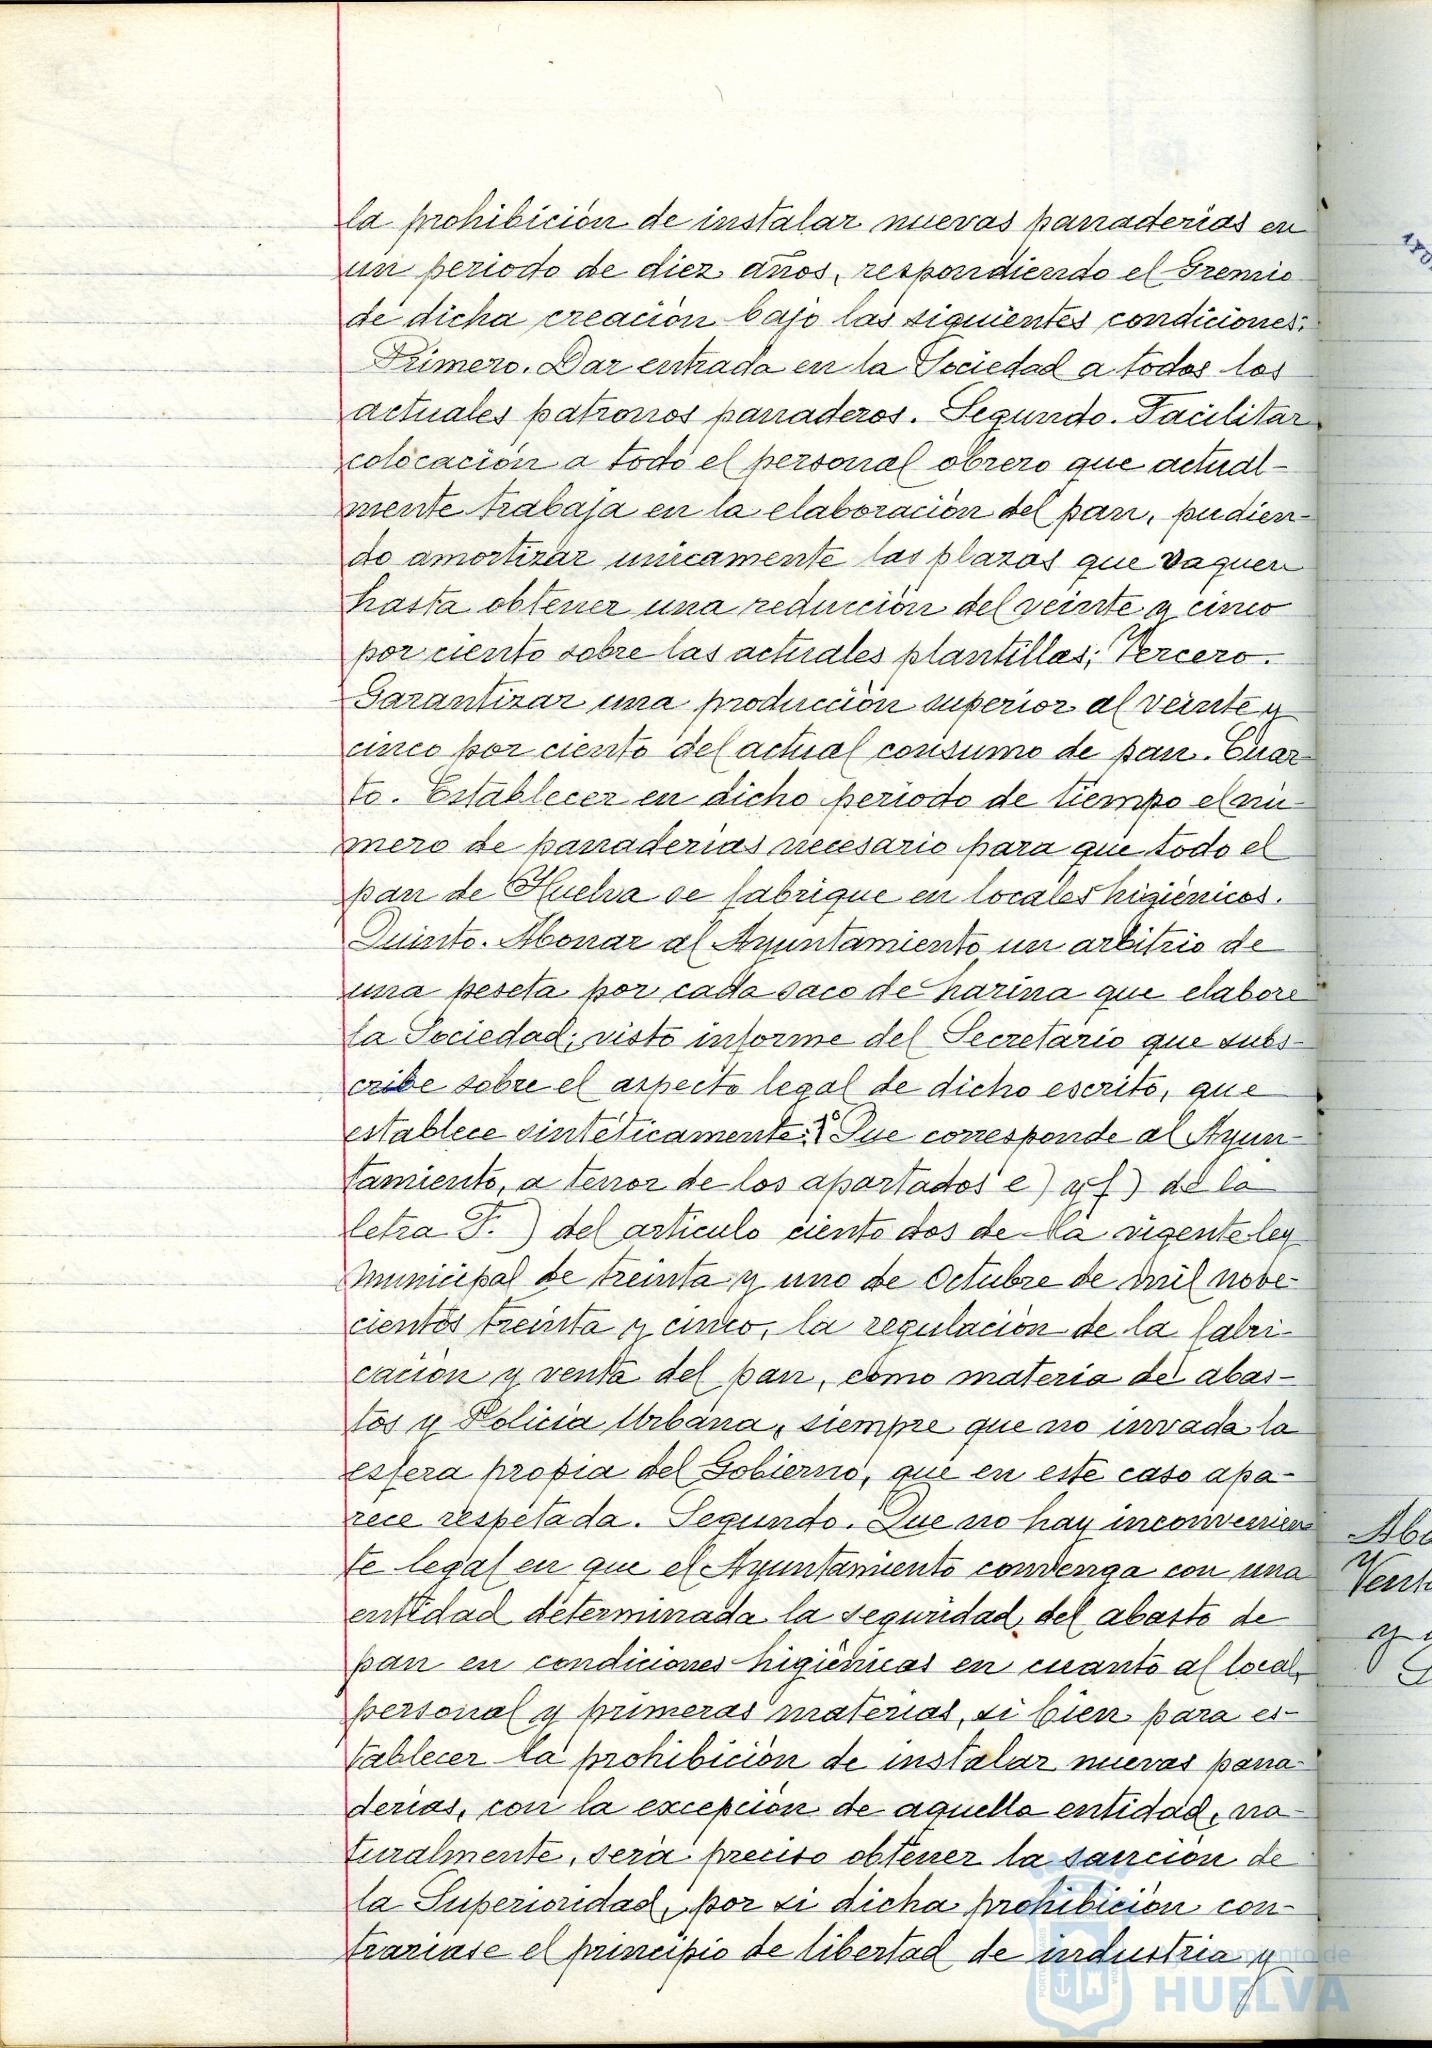 la prohibición de instalar nuevas panaderías en
un periodo de diez años, respondiendo el Gremio
de dicha creación bajo las siguientes condiciones:
Primero. Dar entrada en la Sociedad a todos los
actuales patronos panaderos. Segundo. Facilitar
colocación a todo el personal obrero que actual-
mente trabaja en la elaboración del pan, pudien-
do amortizar unicamente las plazas que vaquen
hasta obtener una reducción del veinte y cinco
por ciento sobre las actuales plantillas; Tercero.
Garantizar una producción superior al veinte y
cinco por ciento del actual consumo de pan. Cuar-
to. Establecer en dicho periodo de tiempo el nú-
mero de panaderias necesario para que todo el
pan de Huelva se fabrique en locales higiénicos.
Quinto. Abonar al Ayuntamiento un arbitrio de
una peseta por cada saco de harina que elabore
la Sociedad; visto informe del Secretario que subs-
cribe sobre el aspecto legal de dicho escrito, que
establece sintéticamente: 1º Que corresponde al Ayun-
tamiento, a tenor de los apartados e) y f) de la
letra F.) del articulo ciento dos de la vigente ley
Municipal de treinta y uno de Octubre de mil nove-
cientos treinta y cinco, la regulación de la fabri-
cación y venta del pan, como materia de abas-
tos y Policia Urbana, siempre que no invada la
esfera propia del Gobierno, que en este caso apa-
rece respetada. Segundo. Que no hay inconvenien-
te legal en que el Ayuntamiento convenga con una
entidad determinada la seguridad del abasto de
pan en condiciones higiénicas en cuanto al local,
personal y primeras materias, si bien para es-
tablecer la prohibición de instalar nuevas pana-
derias, con la excepción de aquella entidad, na-
turalmente, será preciso obtener la sanción de
la Superioridad, por si dicha prohibición con-
trariase el principio de libertad de industria y
Ayuntamiento de
HUELVA